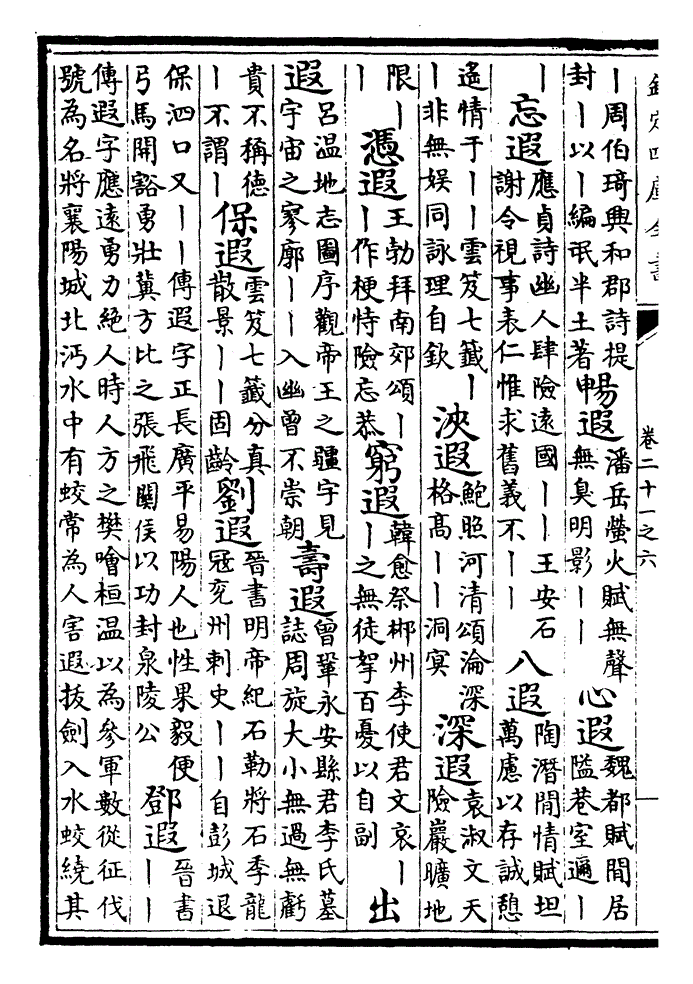 欽定四庫全書
卷二十一之六
丨周伯琦興和郡詩提
封丨以丨編氓半土著
暢遐
潘岳螢火賦無聲
無臭明影丨丨
心遐
魏都賦閒居
隘巷室邇丨
丨
忘遐
應貞詩幽人肆險遠國丨丨王安石
謝令視事表仁惟求舊義不丨丨
八遐
陶潛閒情賦坦
萬慮以存誠憩
遙情于丨丨雲笈七籤丨
丨非無娱同詠理自欽
浹遐
鮑照河清頌淪深
格高丨丨洞冥
深遐
袁淑文天
險巖曠地
限丨
丨
憑遐
王勃拜南郊頌丨
丨作梗恃險忘恭
窮遐
韓愈祭郴州李使君文哀丨
丨之無徒挐百憂以自副
出
遐
呂温地志圖序觀帝王之疆宇見
宇宙之寥廓丨丨入幽曾不崇朝
壽遐
曾鞏永安縣君李氏墓
誌周旋大小無過無虧
貴不稱德
丨不謂丨
保遐
雲笈七籤分真
散景丨丨固齡
劉遐
晉書明帝紀石勒將石季龍
冦兖州刺史丨丨自彭城退
保泗口又丨丨傳遐字正長廣平易陽人也性果毅便
弓馬開豁勇壯冀方比之張飛關侯以功封泉陵公
鄧遐
晉書
丨丨
傳遐字應遠勇力絶人時人方之樊噲桓温以為參軍數從征伐
號為名將襄陽城北沔水中有蛟常為人害遐拔劍入水蛟繞其